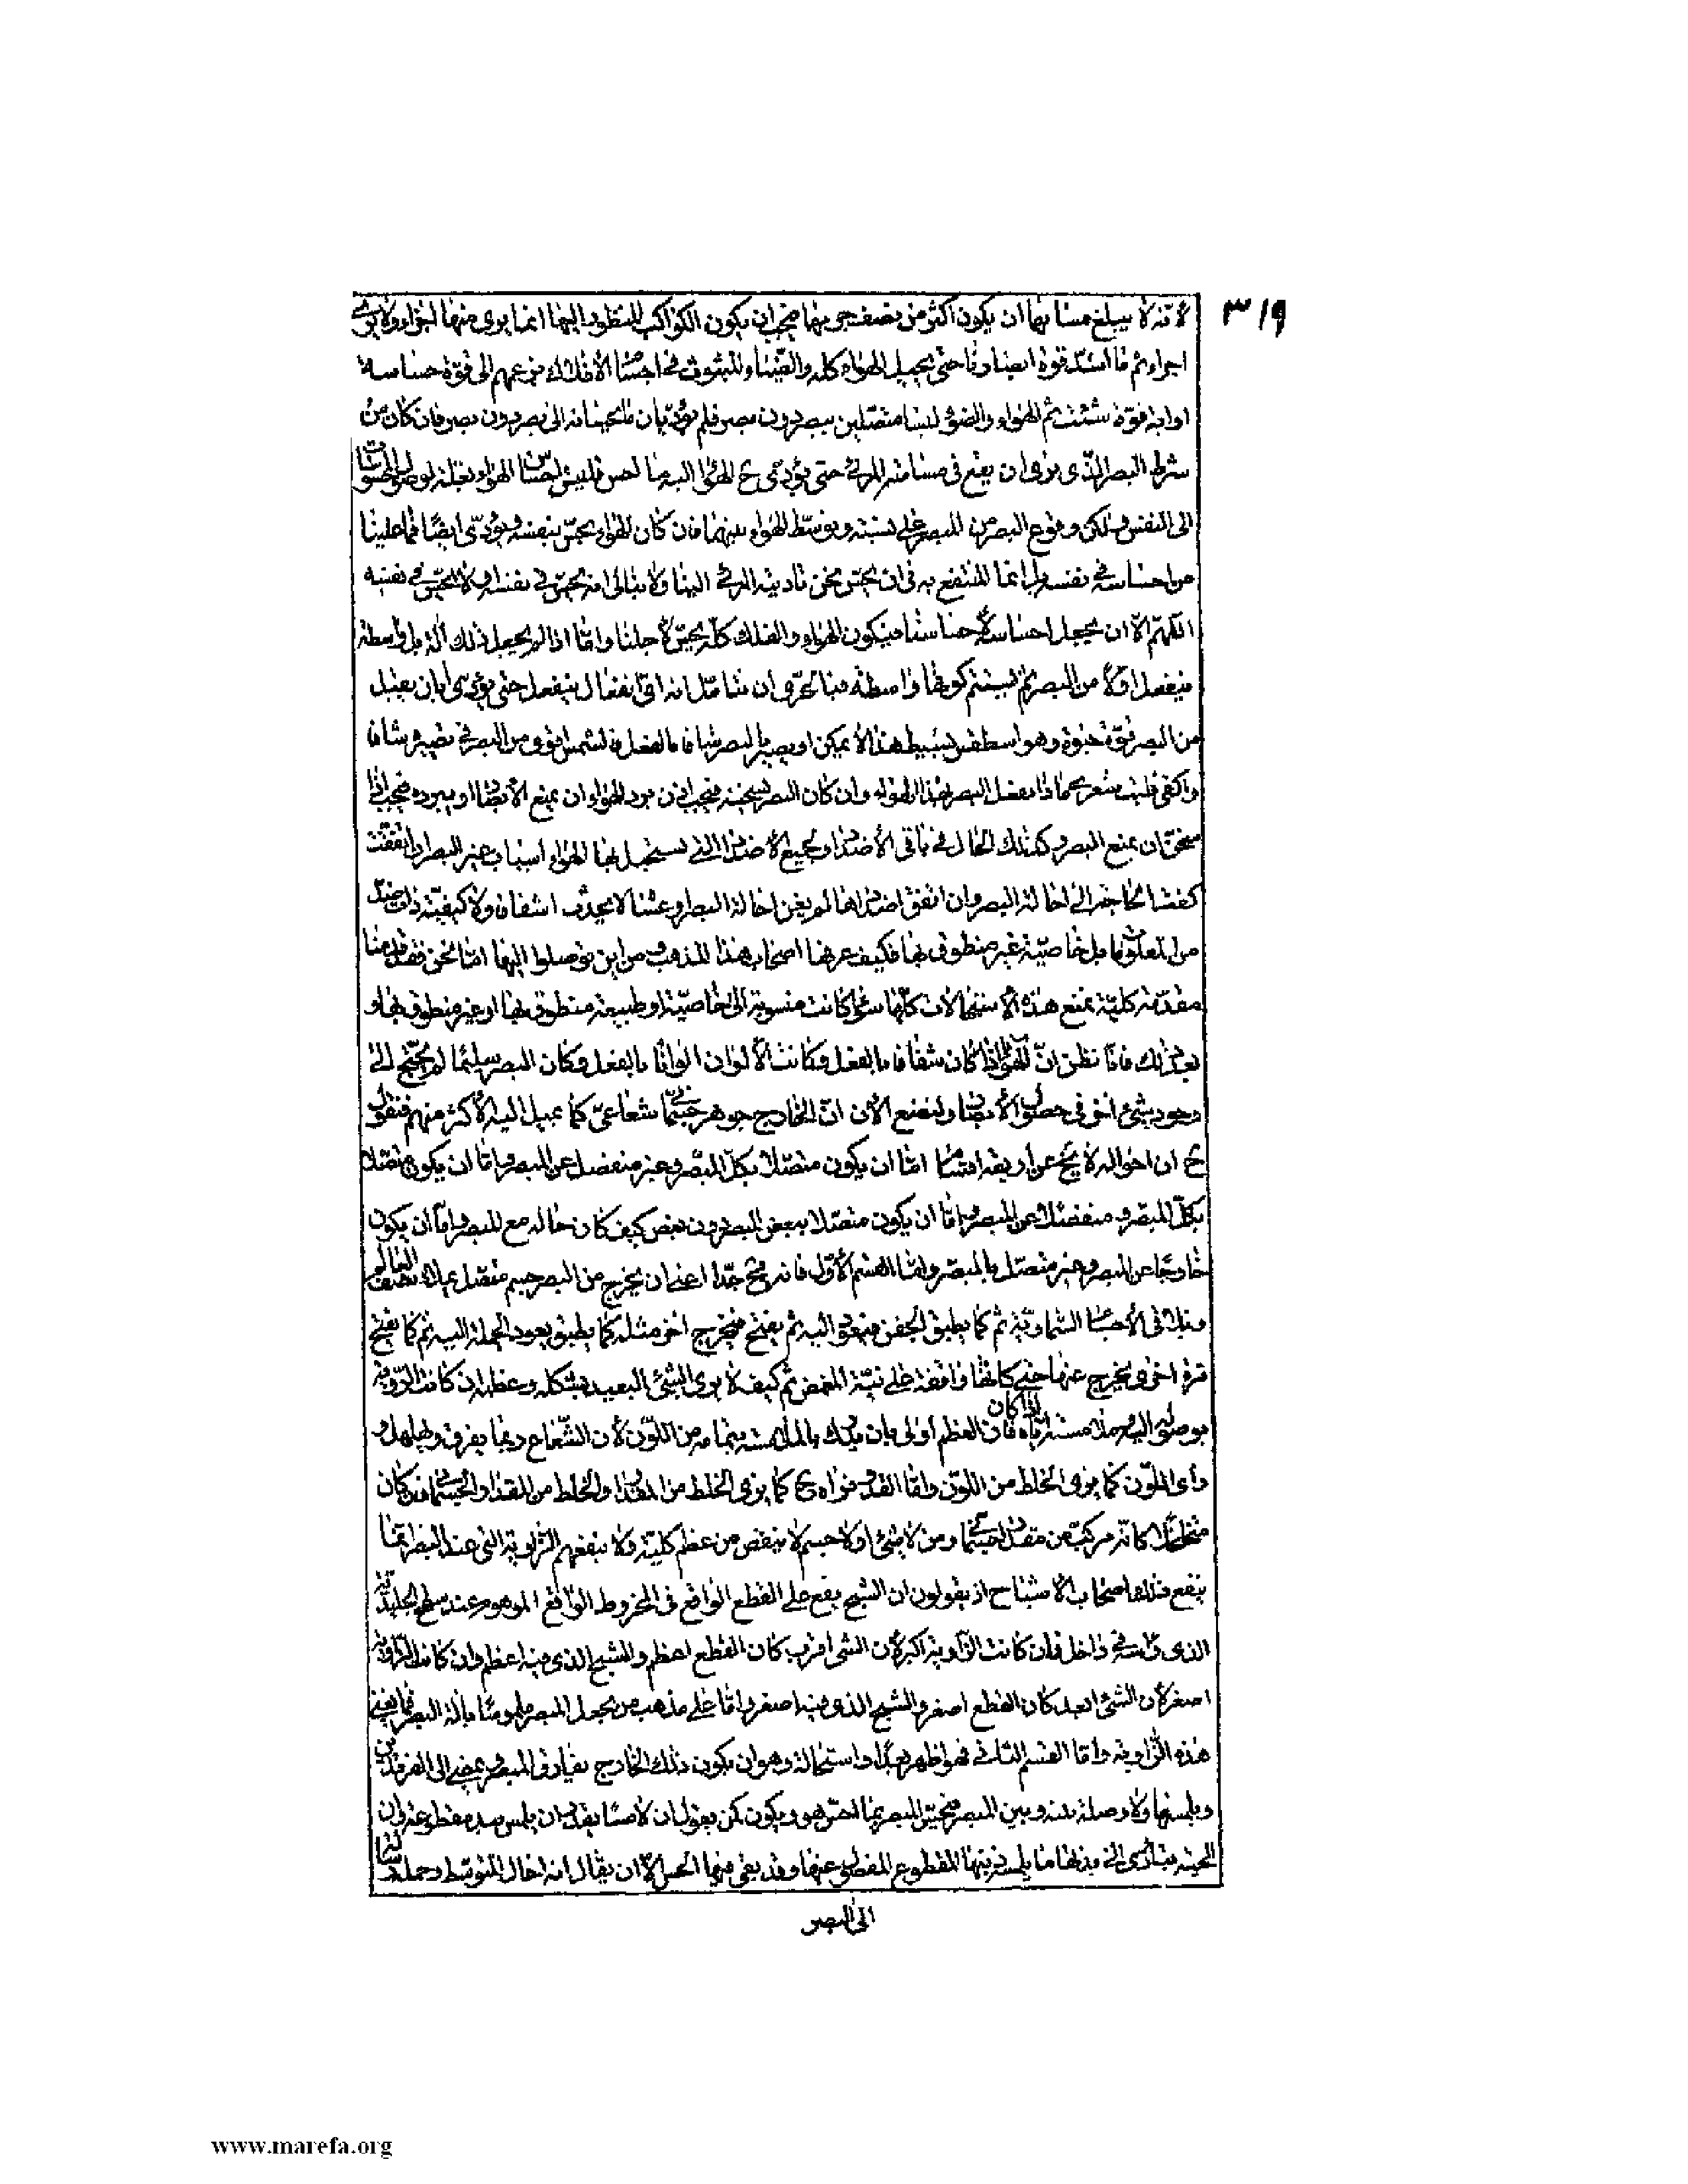 ٣١٩
لأنه لا يبلغ مسامها ان يكون اكثر من نصف جرمها فيجب ان يكون الكواكب المنظور اليها انما يرى منها اجزاء ولا يرى
اجزاء ثم ما اشد قوة ابصارنا حتى يحيل الهواء كله والضياء المبثوث فى اجسام الأفلاك بزعمهم الى قوة حساسة
او اية قوة شئت ثم الهواء والضوء ليسا متصلين ببصر دون بصر فلم يؤديان ما يحسانه الى بصر دون بصر فان كان من
شرط البصر الذى يرى ان يقع فى مسامتة المرئى حتى يؤدى ح الهواء اليه ما احس فليس احساس الهواء بعلة لوصول المحسوسات
الى النفس ولكن وقوع البصر من المبصر على نسبته وتوسط الهواء بينهما فان كان الهواء يحس بنفسه ويؤدى ايضا فما علينا
من احساسه فى نفسه بل انما المنتفع به فى ان نحس نحن تاديته المرئى الينا ولا نبالى انه يحس فى نفسه او لا يحس فى نفسه
اللهم الا ان يجعل احساسه لأحساسنا فيكون الهواء والفلك كله يحس لأجلنا واما اذا لم يجعل ذلك آلة بل واسطة
ينفعل اولا من البصر ثم يستتم كونها واسطة فبالحرى ان نتامل انه اى انفعال ينفعل حتى يؤدى أبان يقبل
من البصر قوة حيوة وهو اسطقس بسيط هذا لا يمكن او يصير بالبصر شفافا بالفعل فالشمس اقوى من البصر فى تصييره شفافا
واكفى فليت شعرى ماذا يفعل البصر بهذا الهواء وان كان البصر يسخنه فيجب اذن برد الهواء ان يمنع الأبصار او يبرده فيجب اذا
سخن ان يمنع البصر وكذلك الحال فى باقى الأضداد ولجميع الأضداد التى يستحيل بها الهواء اسباب غير البصر ان اتفقت
كفت الحاجة الى احالة البصر وان اتفق اضدادها لم يغن احالة البصر وعسى لا يحدث اشفافا ولا كيفية ذات ضد
من المعلومات بل خاصية غير منطوق بها فكيف عرفها اصحاب هذا المذهب ومن اين توصلوا اليها اما نحن فقد قدمنا
مقدمة كلية تمنع هذه الأستحالات كلها سواء كانت منسوبة الى خاصية او طبيعة منطوق بها او غير منطوق بها و
بعد ذلك فانا نظن ان الهواء اذا كان شفافا بالفعل وكانت الألوان الوانا بالفعل وكان البصر سليما لم يحتج الى
وجود شىء اخر فى حصول الأبصار ولنضع الأن ان الخارج جوهر جسمانى شعاعى كما يميل اليه الأكثر منهم فنقول
ح ان احواله لا يخ عن اربعة اقسام اما ان يكون متصلا بكل المبصر وغير منفصل عن المبصر واما ان يكون متصلا
بكل المبصر ومنفصلا عن المبصر واما ان يكون متصلا ببعض المبصر دون بعض كيف كان حاله مع المبصر واما ان يكون
خارجا عن المبصر وغير متصل بالمبصر واما القسم الأول فانه مح جدا اعنى ان يخرج من البصر جسم متصل يملأ نصف العالم
ويلاقى الأجسام السماوية ثم كما يطبق الجفن فيعود اليه ثم يفتح فيخرج اخر مثله كما يطبق يعود الجملة اليه ثم كما يفتح
مرة اخرى يخرج عنها حتى كانها واقفة على نية المغمض ثم كيف لا يرى الشىء البعيد بشكله وعظمه ان كانت الرؤية
بوصوله اليه وملامسته اياه اذا كان فان العظم أولى بان يدرك بالملامسة بتمامه من اللون لأن الشعاع ربما يفرق وهلهل و
رأى اللون كما يرى الخلط من اللون واما القدر فيراه ح كما يرى الخلط من المقدار والخلط من المقدار الجسمانى وان كان
متخلخلا كانه مركب من مقدار جسمانى ومن لا شىء أو لا جسم لا ينقص من عظم كليته ولا ينفعهم الزاوية التى عند البصر انما
ينفع ذلك اصحاب الأشباح اذ يقولون ان الشبح يقع على القطع الواقع فى المخروط الواقع الموهوم عند سطح الجليدية
الذى راسه فى داخل فان كانت الزاوية اكبر لأن الشىء اقرب كان القطع اعظم والشبح الذى فيه اعظم وان كانت الزاوية
اصغر لأن الشىء ابعد كان القطع اصغر والشبح الذى فيه اصغر واما على مذهب من يجعل المبصر ملموسا بآلة البصر فما يغنى
هذه الزاوية واما القسم الثانى فهو اظهر بعدا واستحالة وهو ان يكون ذلك الخارج يفارق المبصر ويمضى الى الفرقدين
ويلمسهما ولا وصلة بينه وبين المبصر فيحس المبصر بما احس هو ويكون كمن يقول ان لامسا يقدر ان يلمس بيد مقطوعة وان
الحية يتأدى الى بدنها ما يلمسه ذنبها المقطوع المفصول عنها وقد بقى فيها الحس الا ان يقال انه احال المتوسط وحمله رسالة
الى البصر
www.marefa.org